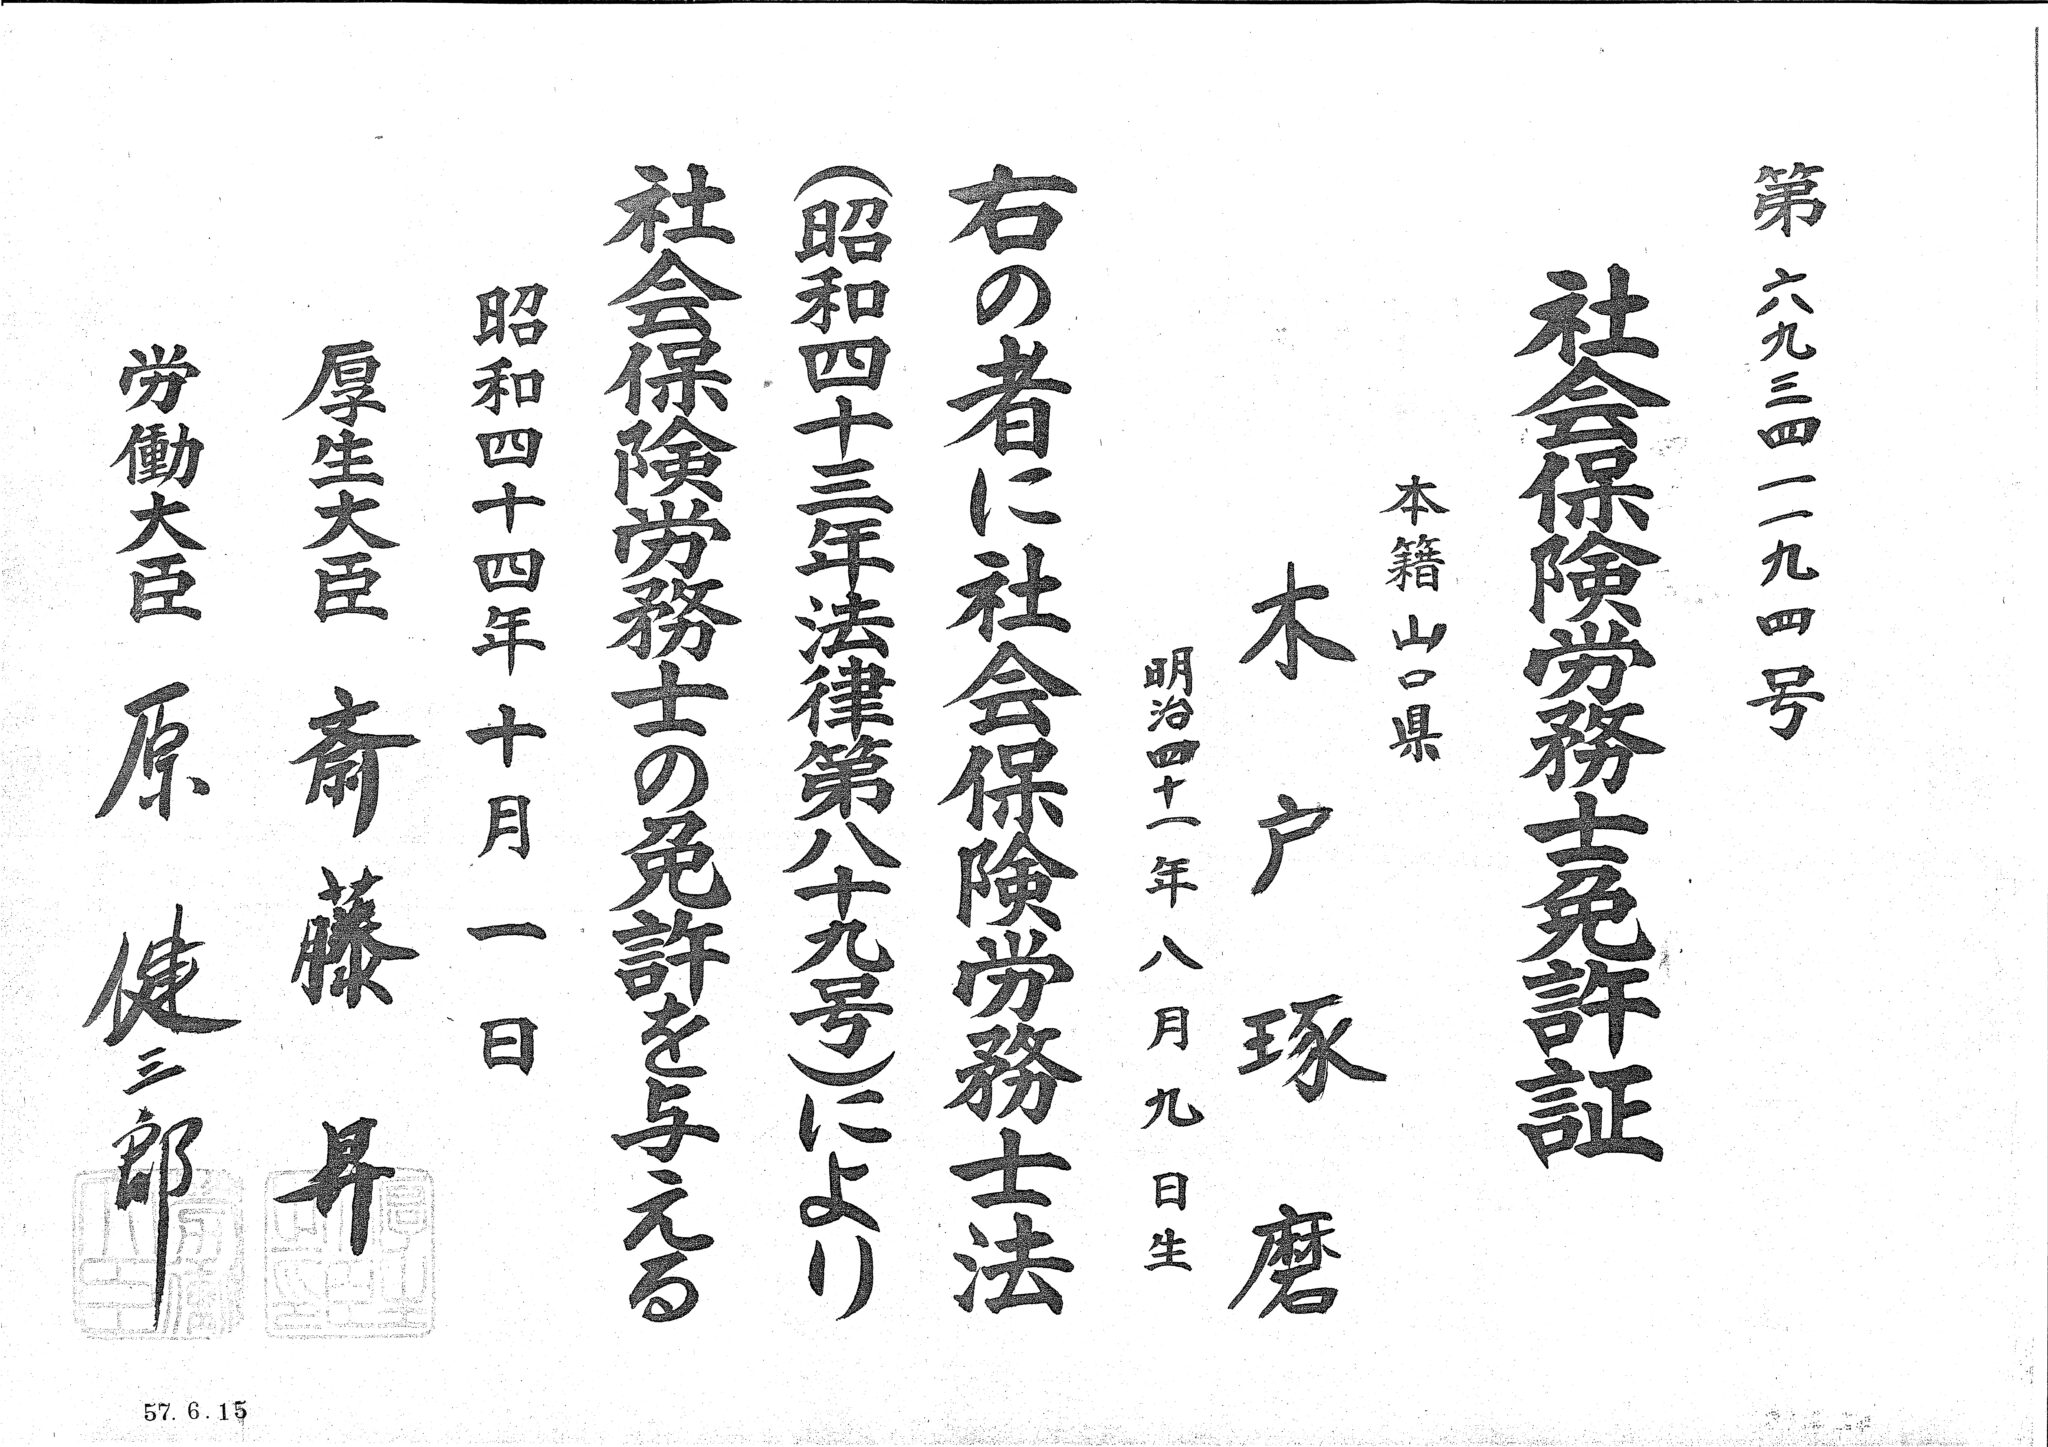 第六九三四一一九四号
社会保険労務士免許証
本籍山口県
木戸琢磨
明治四十一年八月九日生
右の者に社会保険労務士法
(昭和四十三年法律第八十九号)により
社会保険労務士の免許を与える
昭和四十四年十月一日
厚生大臣 斎藤昇
労働大臣 原健三郎
57.6.15